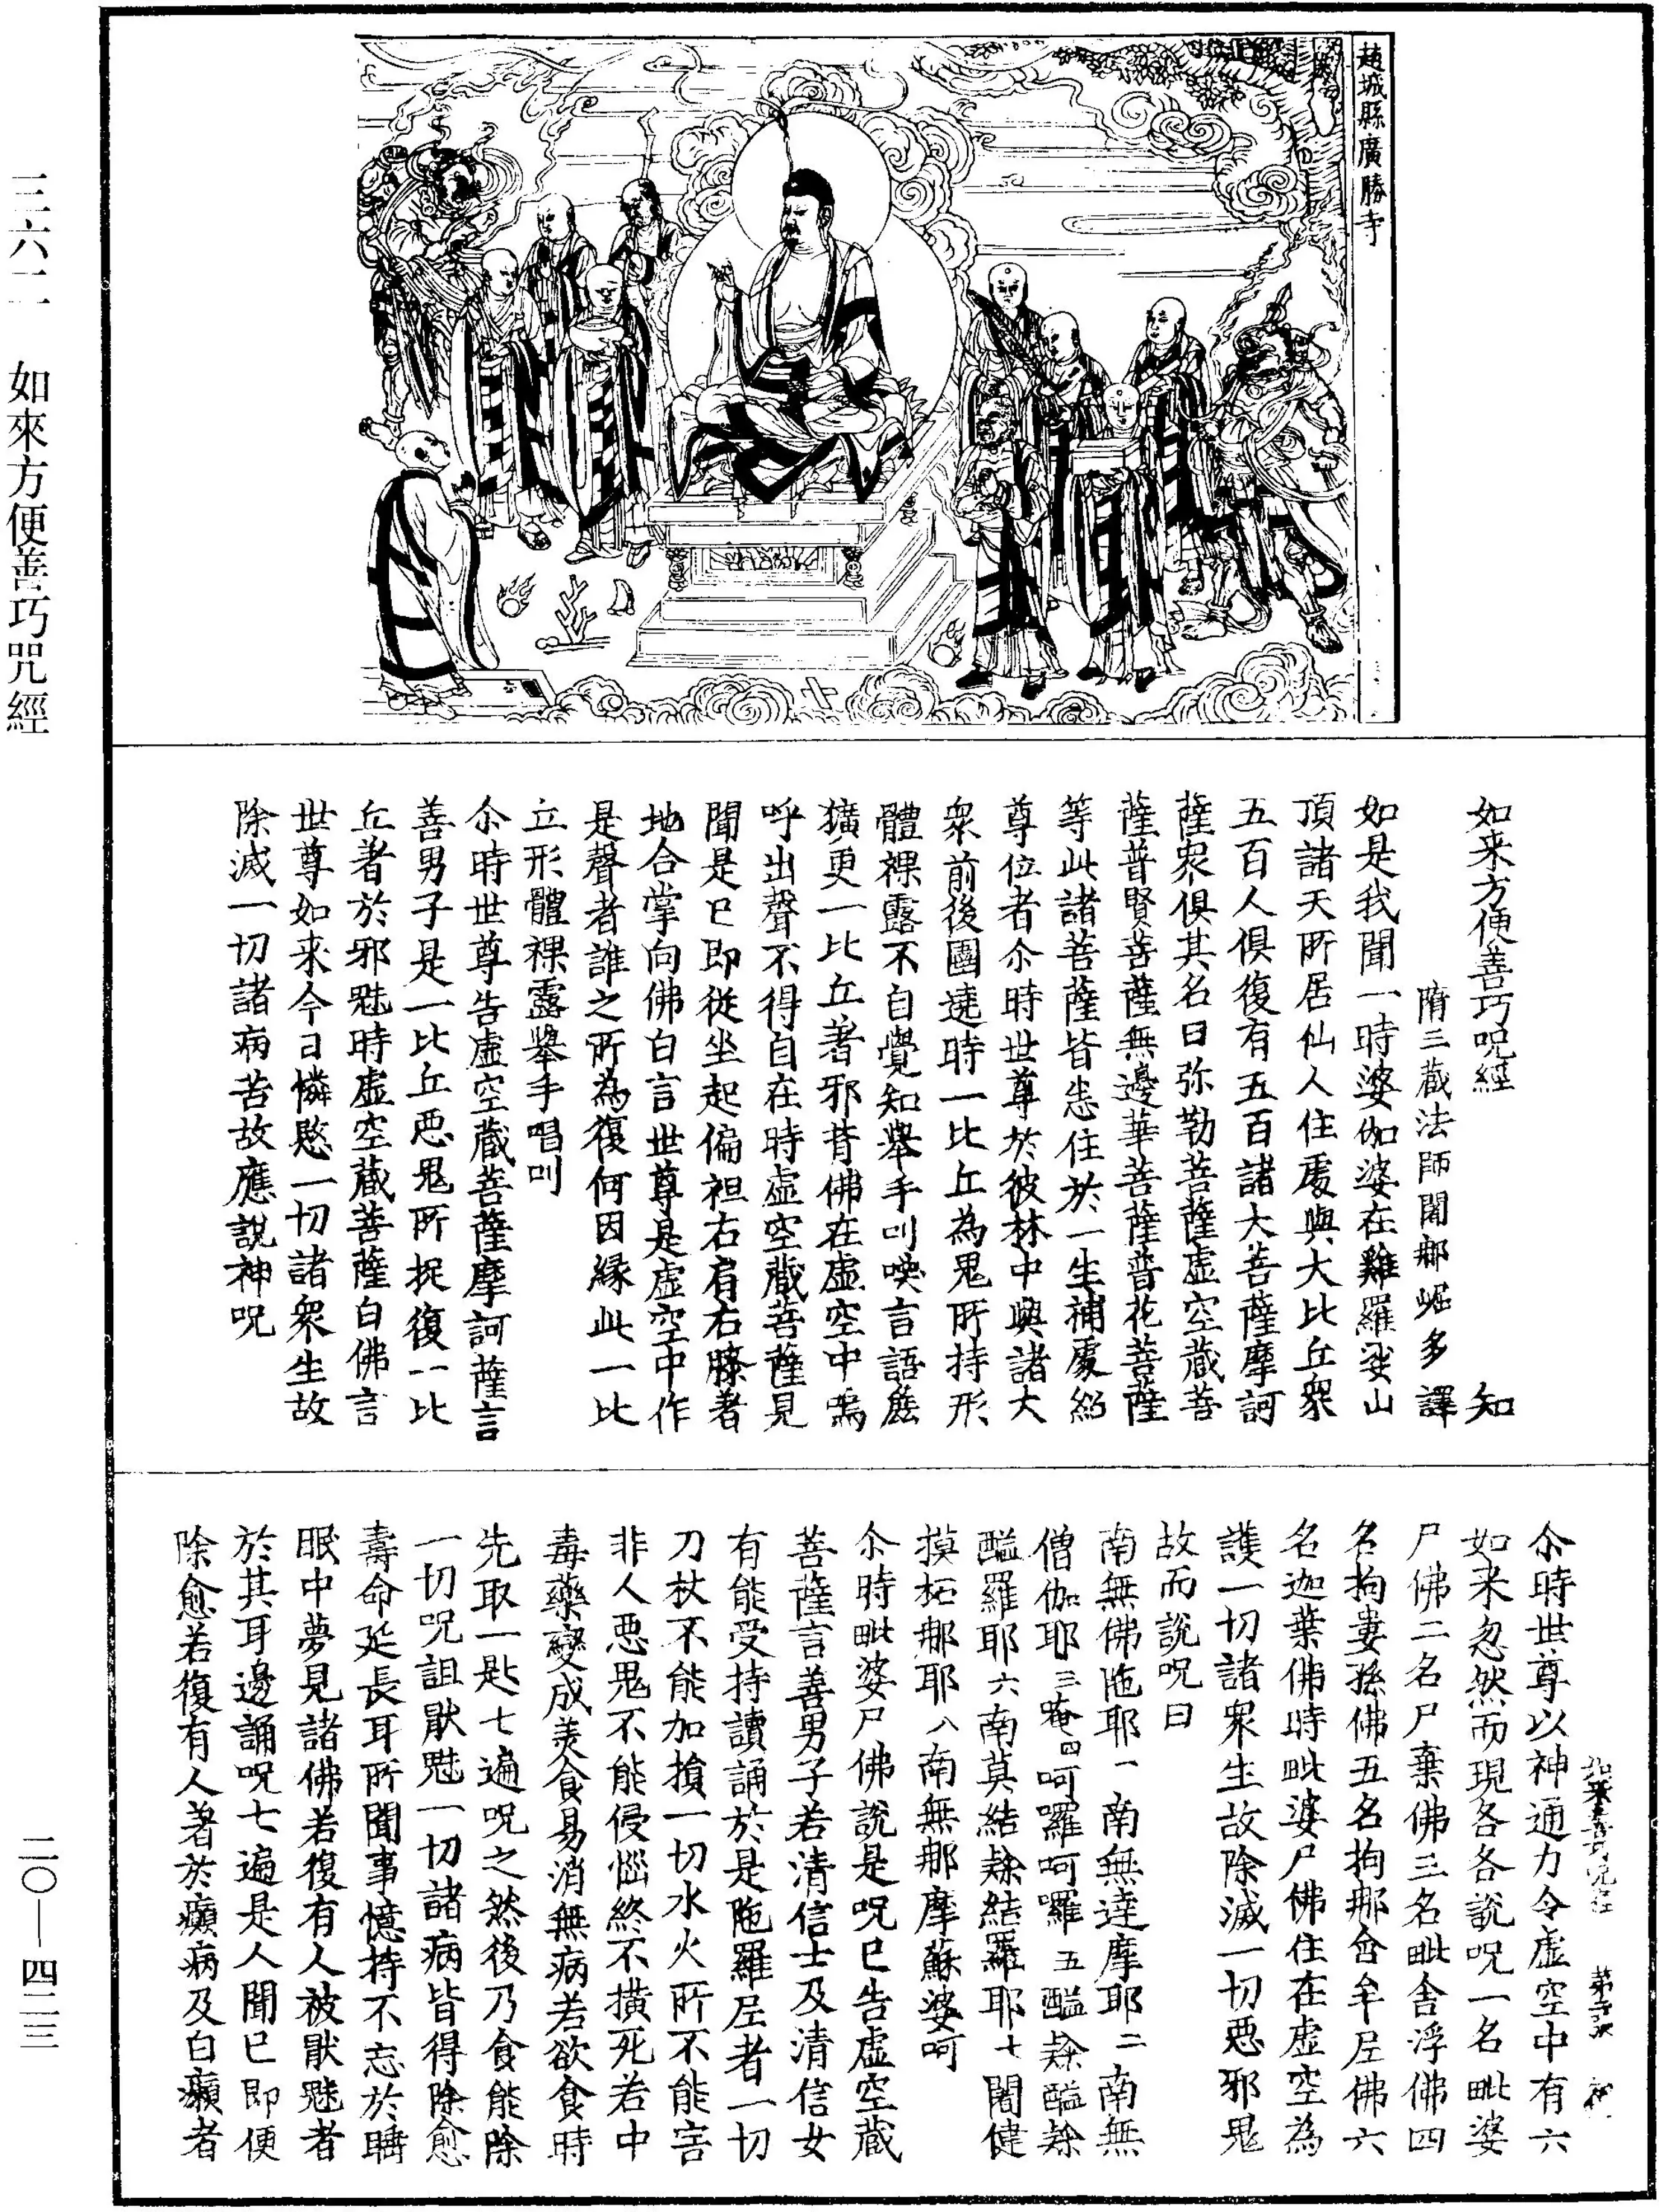 三六二　如來方便善巧咒經
趙城縣廣勝寺
如来方便善巧呪經　知
隋三藏法師闍那崛多　譯
如是我聞一時婆伽婆在雞羅娑山
頂諸天所居仙人住處與大比丘衆
五百人俱復有五百諸大菩薩摩訶
薩衆俱其名曰弥勒菩薩虚空藏菩
薩普賢菩薩無邊華菩薩普花菩薩
等此諸菩薩皆悉住於一生補處紹
尊位者尒時世尊於彼林中與諸大
衆前後圍遶時一比丘為鬼所持形
體裸露不自覺知舉手叫喚言語麁
獷更一比丘著邪背佛在虚空中嗚
呼出聲不得自在時虚空藏菩薩見
聞是已即從坐起偏袒右肩右膝著
地合掌向佛白言世尊是虚空中作
是聲者誰之所為復何因縁此一比
丘形體裸露舉手唱叫
尒時世尊告虚空藏菩薩摩訶薩言
善男子是一比丘惡鬼所捉復一比
丘著於邪魅時虚空藏菩薩白佛言
世尊如来今日憐愍一切諸衆生故
除滅一切諸病苦故應說神呪
尒時世尊以神通力令虚空中有六
如来忽然而現各各說呪一名毗婆
尸佛二名尸棄佛三名毗舍浮佛四
名拘婁孫佛五名拘那含牟尼佛六
名迦葉佛時毗婆尸佛住在虚空為
護一切諸衆生故除滅一切惡邪鬼
故而說呪曰
南無佛陁耶一南無達摩耶二南無
僧伽耶三唵四呵囉呵囉五醯𨄔醯𨄔
醯羅耶六南莫結𨄔結羅耶七闍健
摸柘那耶八南無那摩蘇婆呵
尒時毗婆尸佛說是呪已告虚空藏
菩薩言善男子若清信士及清信女
有能受持讀誦於是陁羅尼者一切
刀杖不能加損一切水火所不能害
非人惡鬼不能侵惱終不撗死若中
毒藥變成美食易消無病若欲食時
先取一匙七遍呪之然後乃食能除
一切呪詛猒魅一切諸病皆得除愈
壽命延長耳所聞事憶持不忘於睡
眠中夢見諸佛若復有人被猒魅者
於其耳邊誦呪七遍是人聞已即便
除愈若復有人著於癩病及白癩者
二〇—四二三